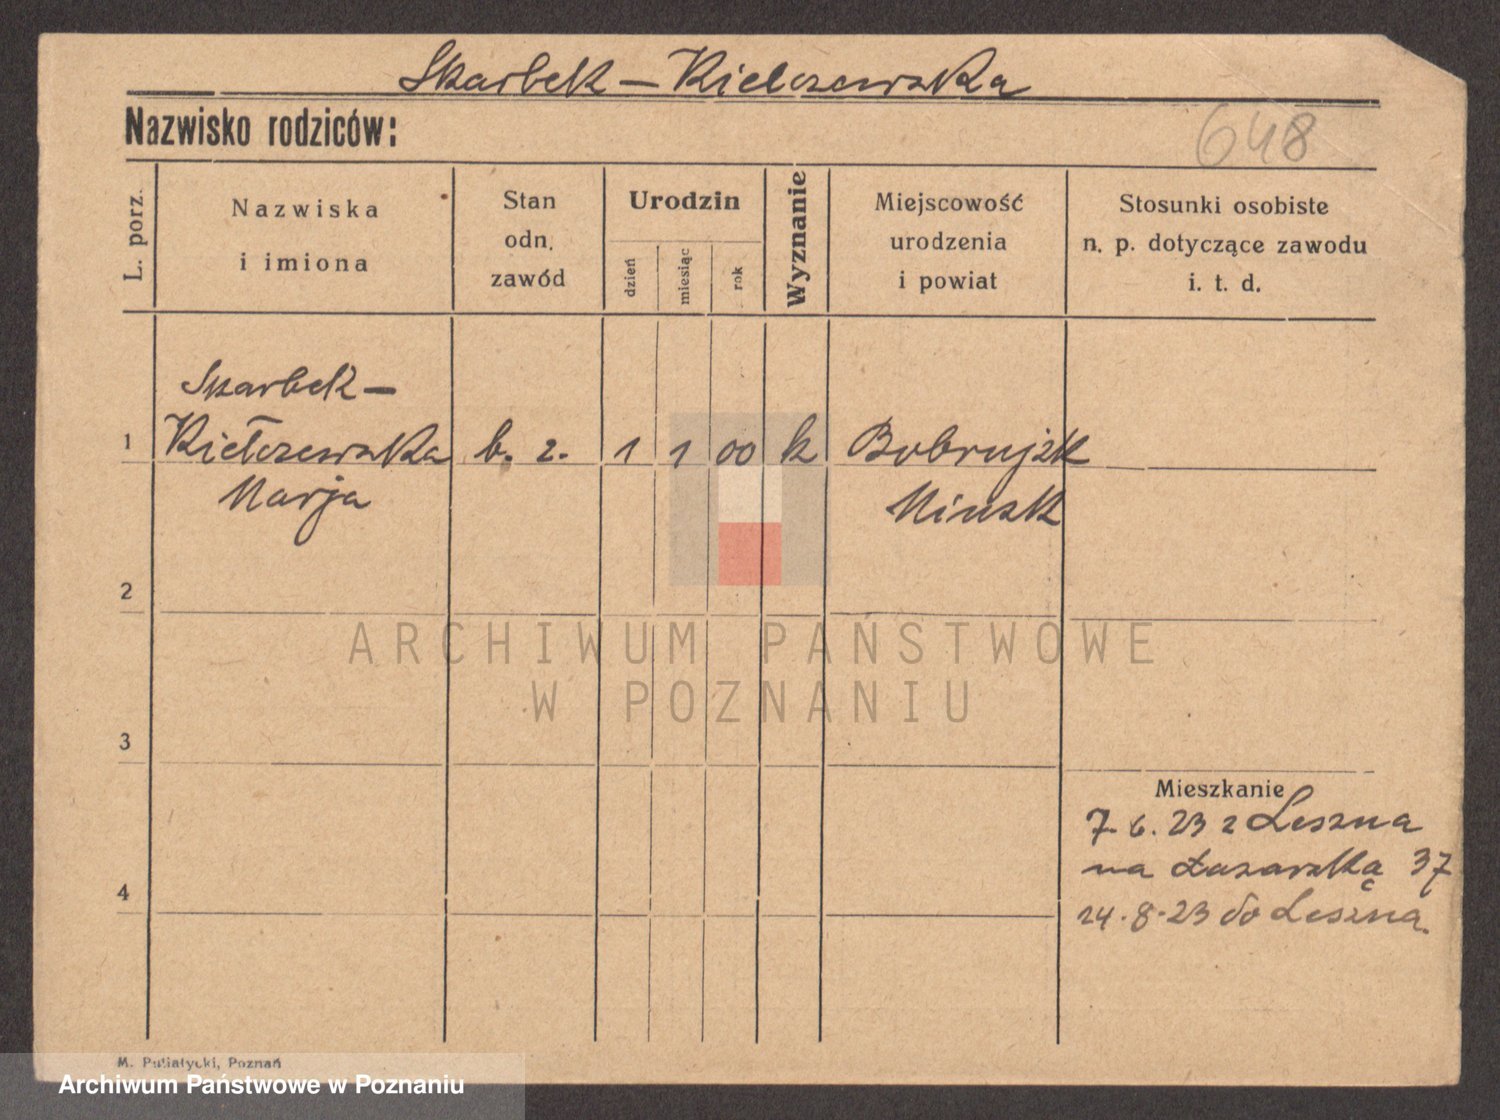 Skarbek – Kielczewska
Nazwisko rodziców:
648
L. porz.
Nazwiska
i imiona
Stan
odn.
zawód
Urodzin
dzień
miesiąc
rok
Wyznanie
Miejscowość
urodzenia
i powiat
Stosunki osobiste
n. p. dotyczące zawodu
i. t. d.
1
Skarbek –
Kiełczewska
Marja
b. z.
1
1
00
k
Bobrujsk
Minsk
2
3
4
Mieszkanie
7. 6. 23 z Leszna
na Łazarską 37
24. 8. 23 do Leszna.
ARCHIWUM PAŃSTWOWE
W POZNANIU
M. Putiatycki, Poznań
Archiwum Państwowe w Poznaniu